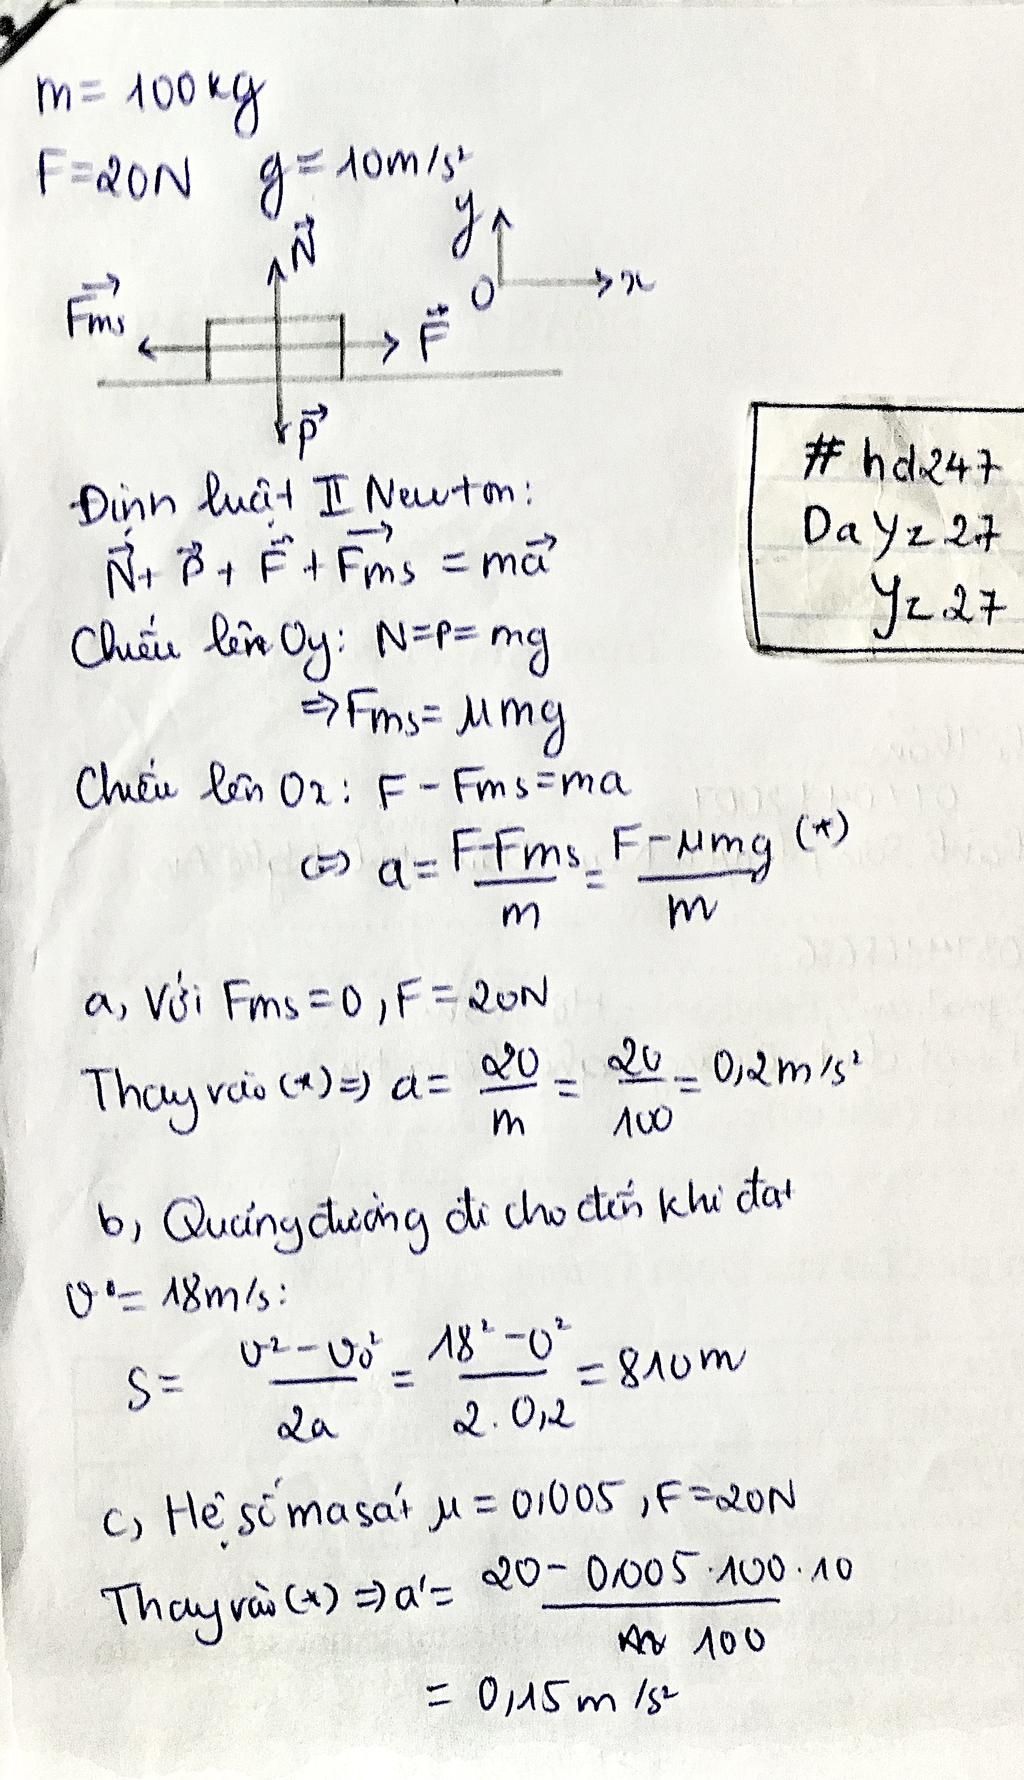 m = 100kg
F = 20N g = 10m/s²
y
N⃗
O x
Fms⃗
F⃗
P⃗
# hd247
Da Yz 27
Yz 27
Định luật II Newton:
N⃗ + P⃗ + F⃗ + Fms⃗ = ma⃗
Chiếu lên Oy: N = P = mg
⇒ Fms = μmg
Chiếu lên Ox: F - Fms = ma
⇔ a = (F - Fms)/m = (F - μmg)/m (*)
a, Với Fms = 0, F = 20N
Thay vào (*) ⇒ a = 20/m = 20/100 = 0,2 m/s²
b, Quãng đường đi cho đến khi đạt
v = 18m/s:
S = (v² - v₀²)/2a = (18² - 0²)/(2 . 0,2) = 810m
c, Hệ số ma sát μ = 0,005, F = 20N
Thay vào (*) ⇒ a' = (20 - 0,005 . 100 . 10)/100
= 0,15 m/s²